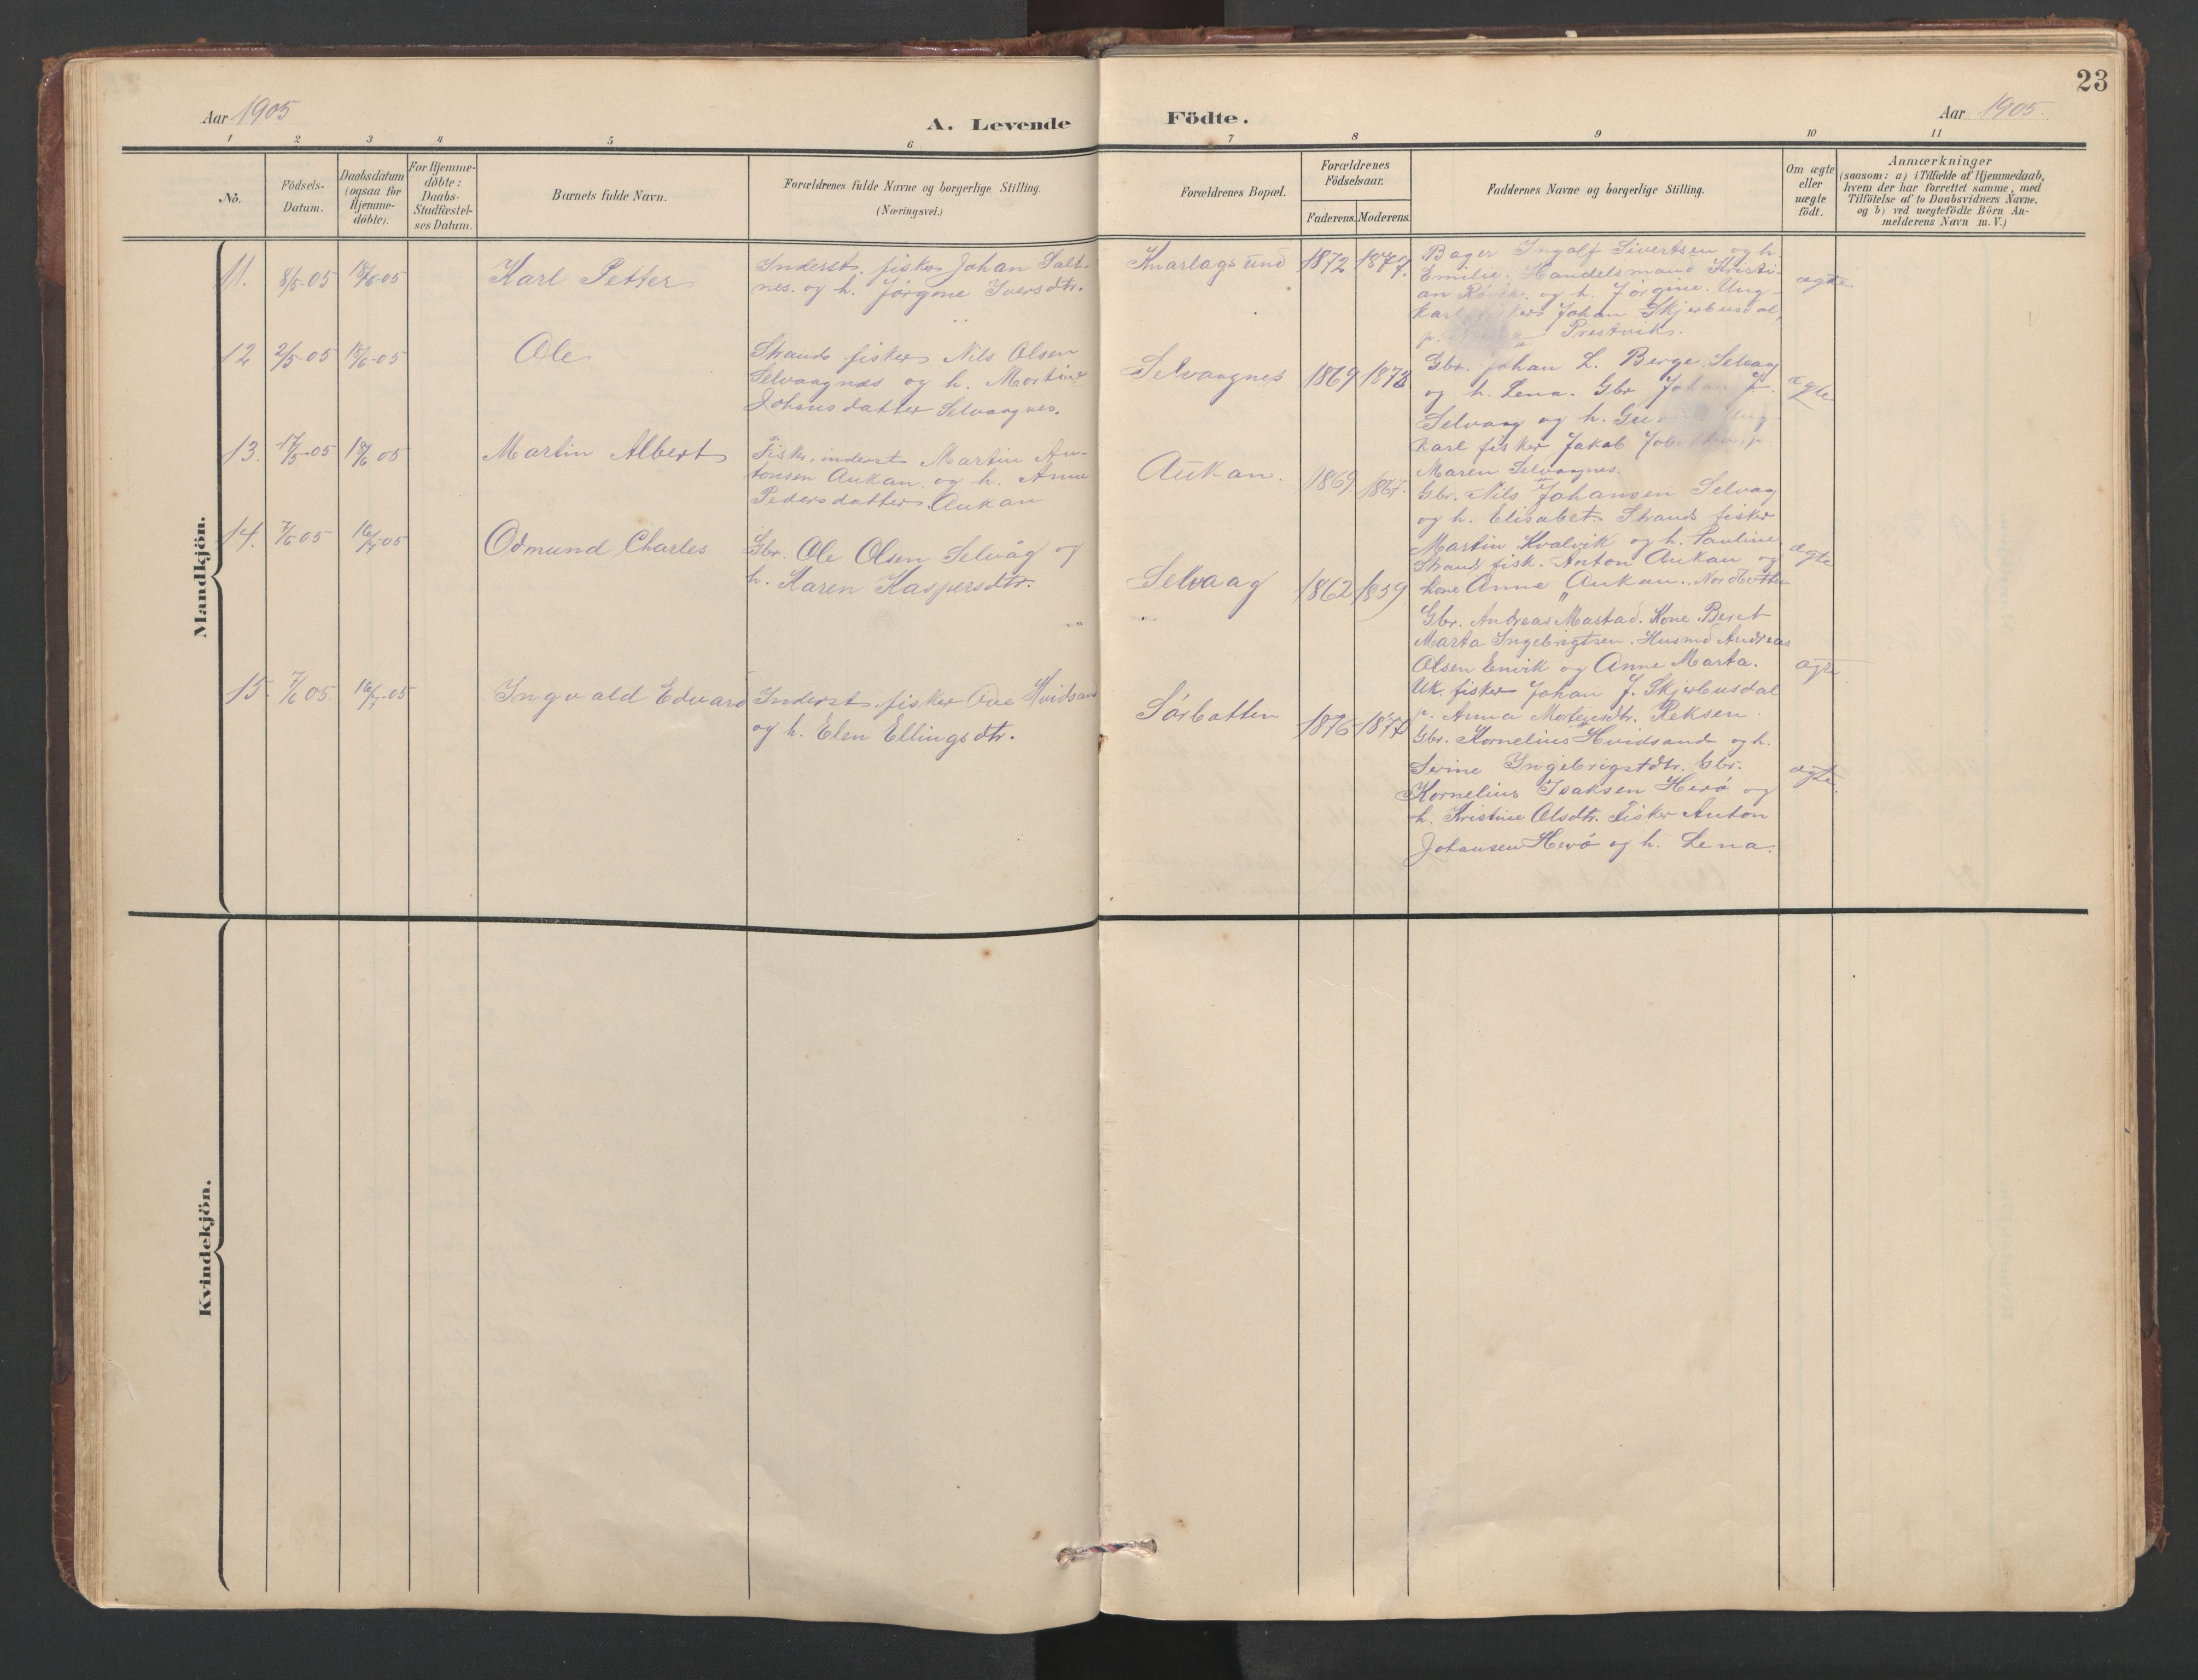 23
Aar 1905
A. Levende Födte.
Aar 1905.
1 2 3 4 5 6 7 8 9 10 11
No.
Födsels-
Datum.
Daabsdatum
(ogsaa for
Hjemme-
döbte).
For Hjemme-
döbte:
Daabs-
Stadfæstel-
ses Datum.
Barnets fulde Navn.
Forældrenes fulde Navne og borgerlige Stilling.
(Næringsvei.)
Forældrenes Bopæl.
Forældrenes
Födselsaar.
Faderens. Moderens.
Faddernes Navne og borgerlige Stilling.
Om ægte
eller
uægte
födt.
Anmærkninger
(saasom: a) i Tilfælde af Hjemmedaab,
hvem der har forrettet samme, med
Tilföielse af to Daabsvidners Navne.
og b) ved uægtefödte Börn An-
melderens Navn m.V.)
Mandkjön.
11. 8/5-05 18/6-05 Karl Petter
Inderst. fisker Johan Salt-
nes. og h. Jørgine Iversdtr.
Knarlagsund 1872 1877.
Bager Ingolf Sivertsen og h.
Emilie. Handelsmand Kristi-
an og h. Jørgine. Ung-
karl Johan Skjerbusdal,
p. Prestvik.
ægte
12 2/5-05 18/6-05 Ole
Strands fisker Nils Olsen
Selvaagnes og h. Martine
Johansdatter Selvaagnes.
Selvaagnes 1869 1873
Gbr. Johan L. Berge. Selvag
og h. Lena. Gbr Johan J.
Selvaag og h.
karl fisker Jakob
Maren Selvaagnes.
ægte
13. 17/5-05 18/6 05 Martin Albert
Fisker, inderst Martin An-
tonsen Aukan og h. Anne
Pedersdatter Aukan
Aukan. 1869 1867.
Gbr. Nils Johansen Selvag
og h. Elisabet. Strands fisker
Martin Kvalvik og h. Pauline
Strands fisk. Anton Aukan og
kone Anne Aukan. Nordbotten
ægte
14. 7/6 05 16/7-05 Odmund Charles
Gbr. Ole Olsen Selvåg og
h. Karen Kaspersdtr.
Selvaag 1862 1859
Gbr. Andreas Mastad. Kone Beret
Marta Ingebrigtsen. Husmd Andreas
Olsen Envik og Anne Marta.
Uk. fisker Johan J. Skjerbusdal
p. Anna Mortensdtr. Reksen.
ægte
15. 7/6 05. 16/7-05 Ingvald Edvard
Inderst. fisker Ove Hvidsand
og h. Elen Ellingsdtr.
Sørbotten 1876
Gbr. Kornelius Hvidsand og h.
Serine Ingebrigstdtr. Gbr.
Kornelius Isaksen Herø og
h. Kristine Olsdtr. Fisker Anton
Johansen Herø og h. Lena.
ægte.
Kvindekjön.